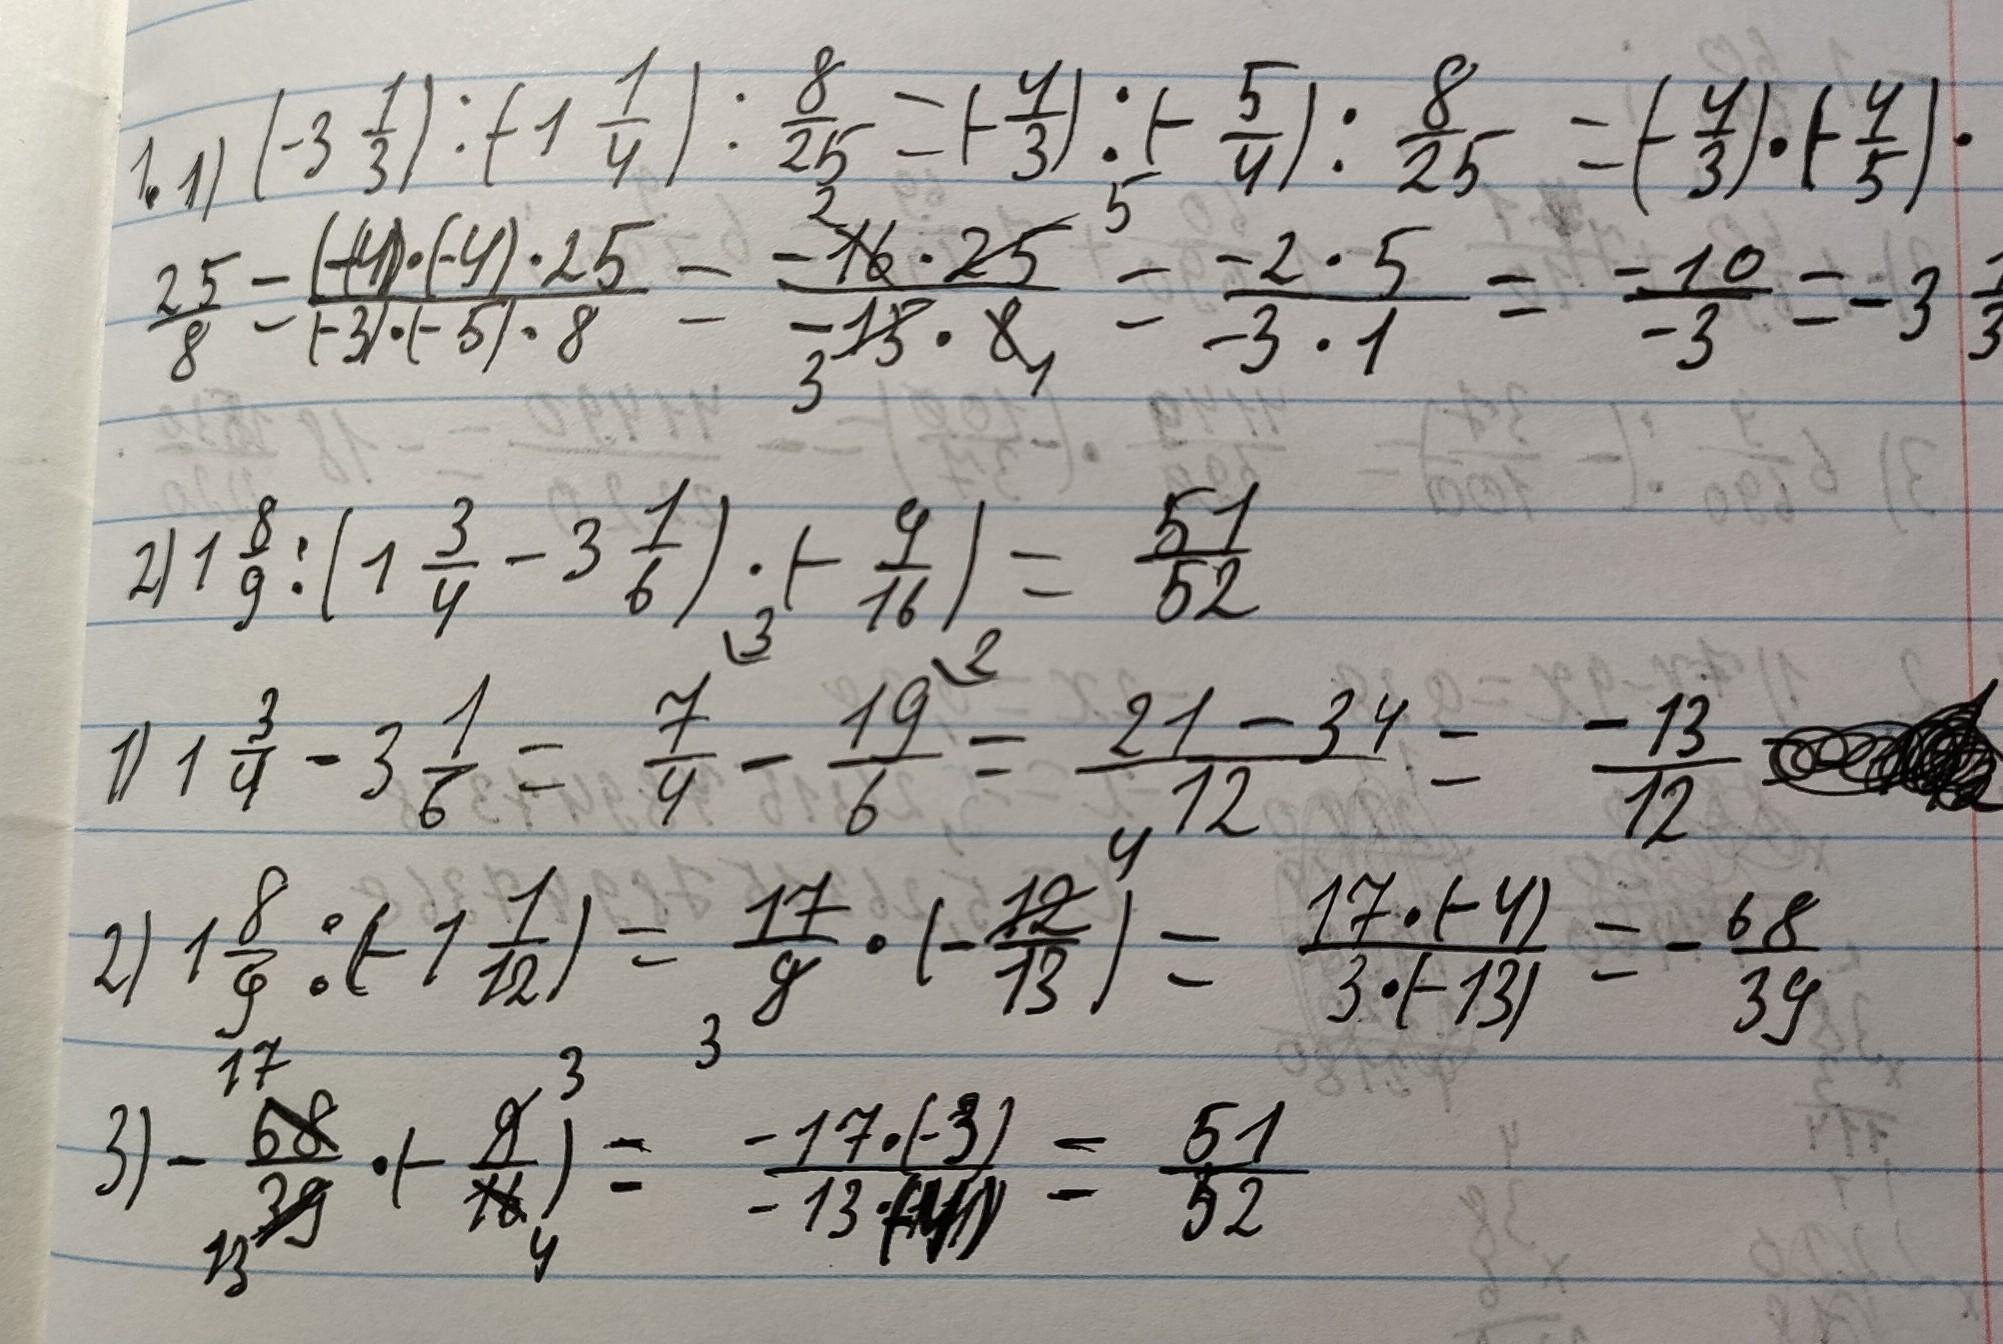 1. 1) (-3 1/3) : (-1 1/4) : 8/25 = (-4/3) : (-5/4) : 8/25 = (-4/3) · (-4/5) ·
25/8 = ((-4) · (-4) · 25)/((-3) · (-5) · 8) = (-16 · 25)/(-15 · 8) = (-2 · 5)/(-3 · 1) = -10/-3 = -3 1/3
2) 1 8/9 : (1 3/4 - 3 1/6) · (-9/16) = 51/52
1) 1 3/4 - 3 1/6 = 7/4 - 19/6 = (21 - 34)/12 = -13/12
2) 1 8/9 : (-1 1/12) = 17/9 · (-12/13) = (17 · (-4))/(3 · (-13)) = - 68/39
3) - 68/39 · (-9/16) = (-17 · (-3))/(-13 · (-4)) = 51/52